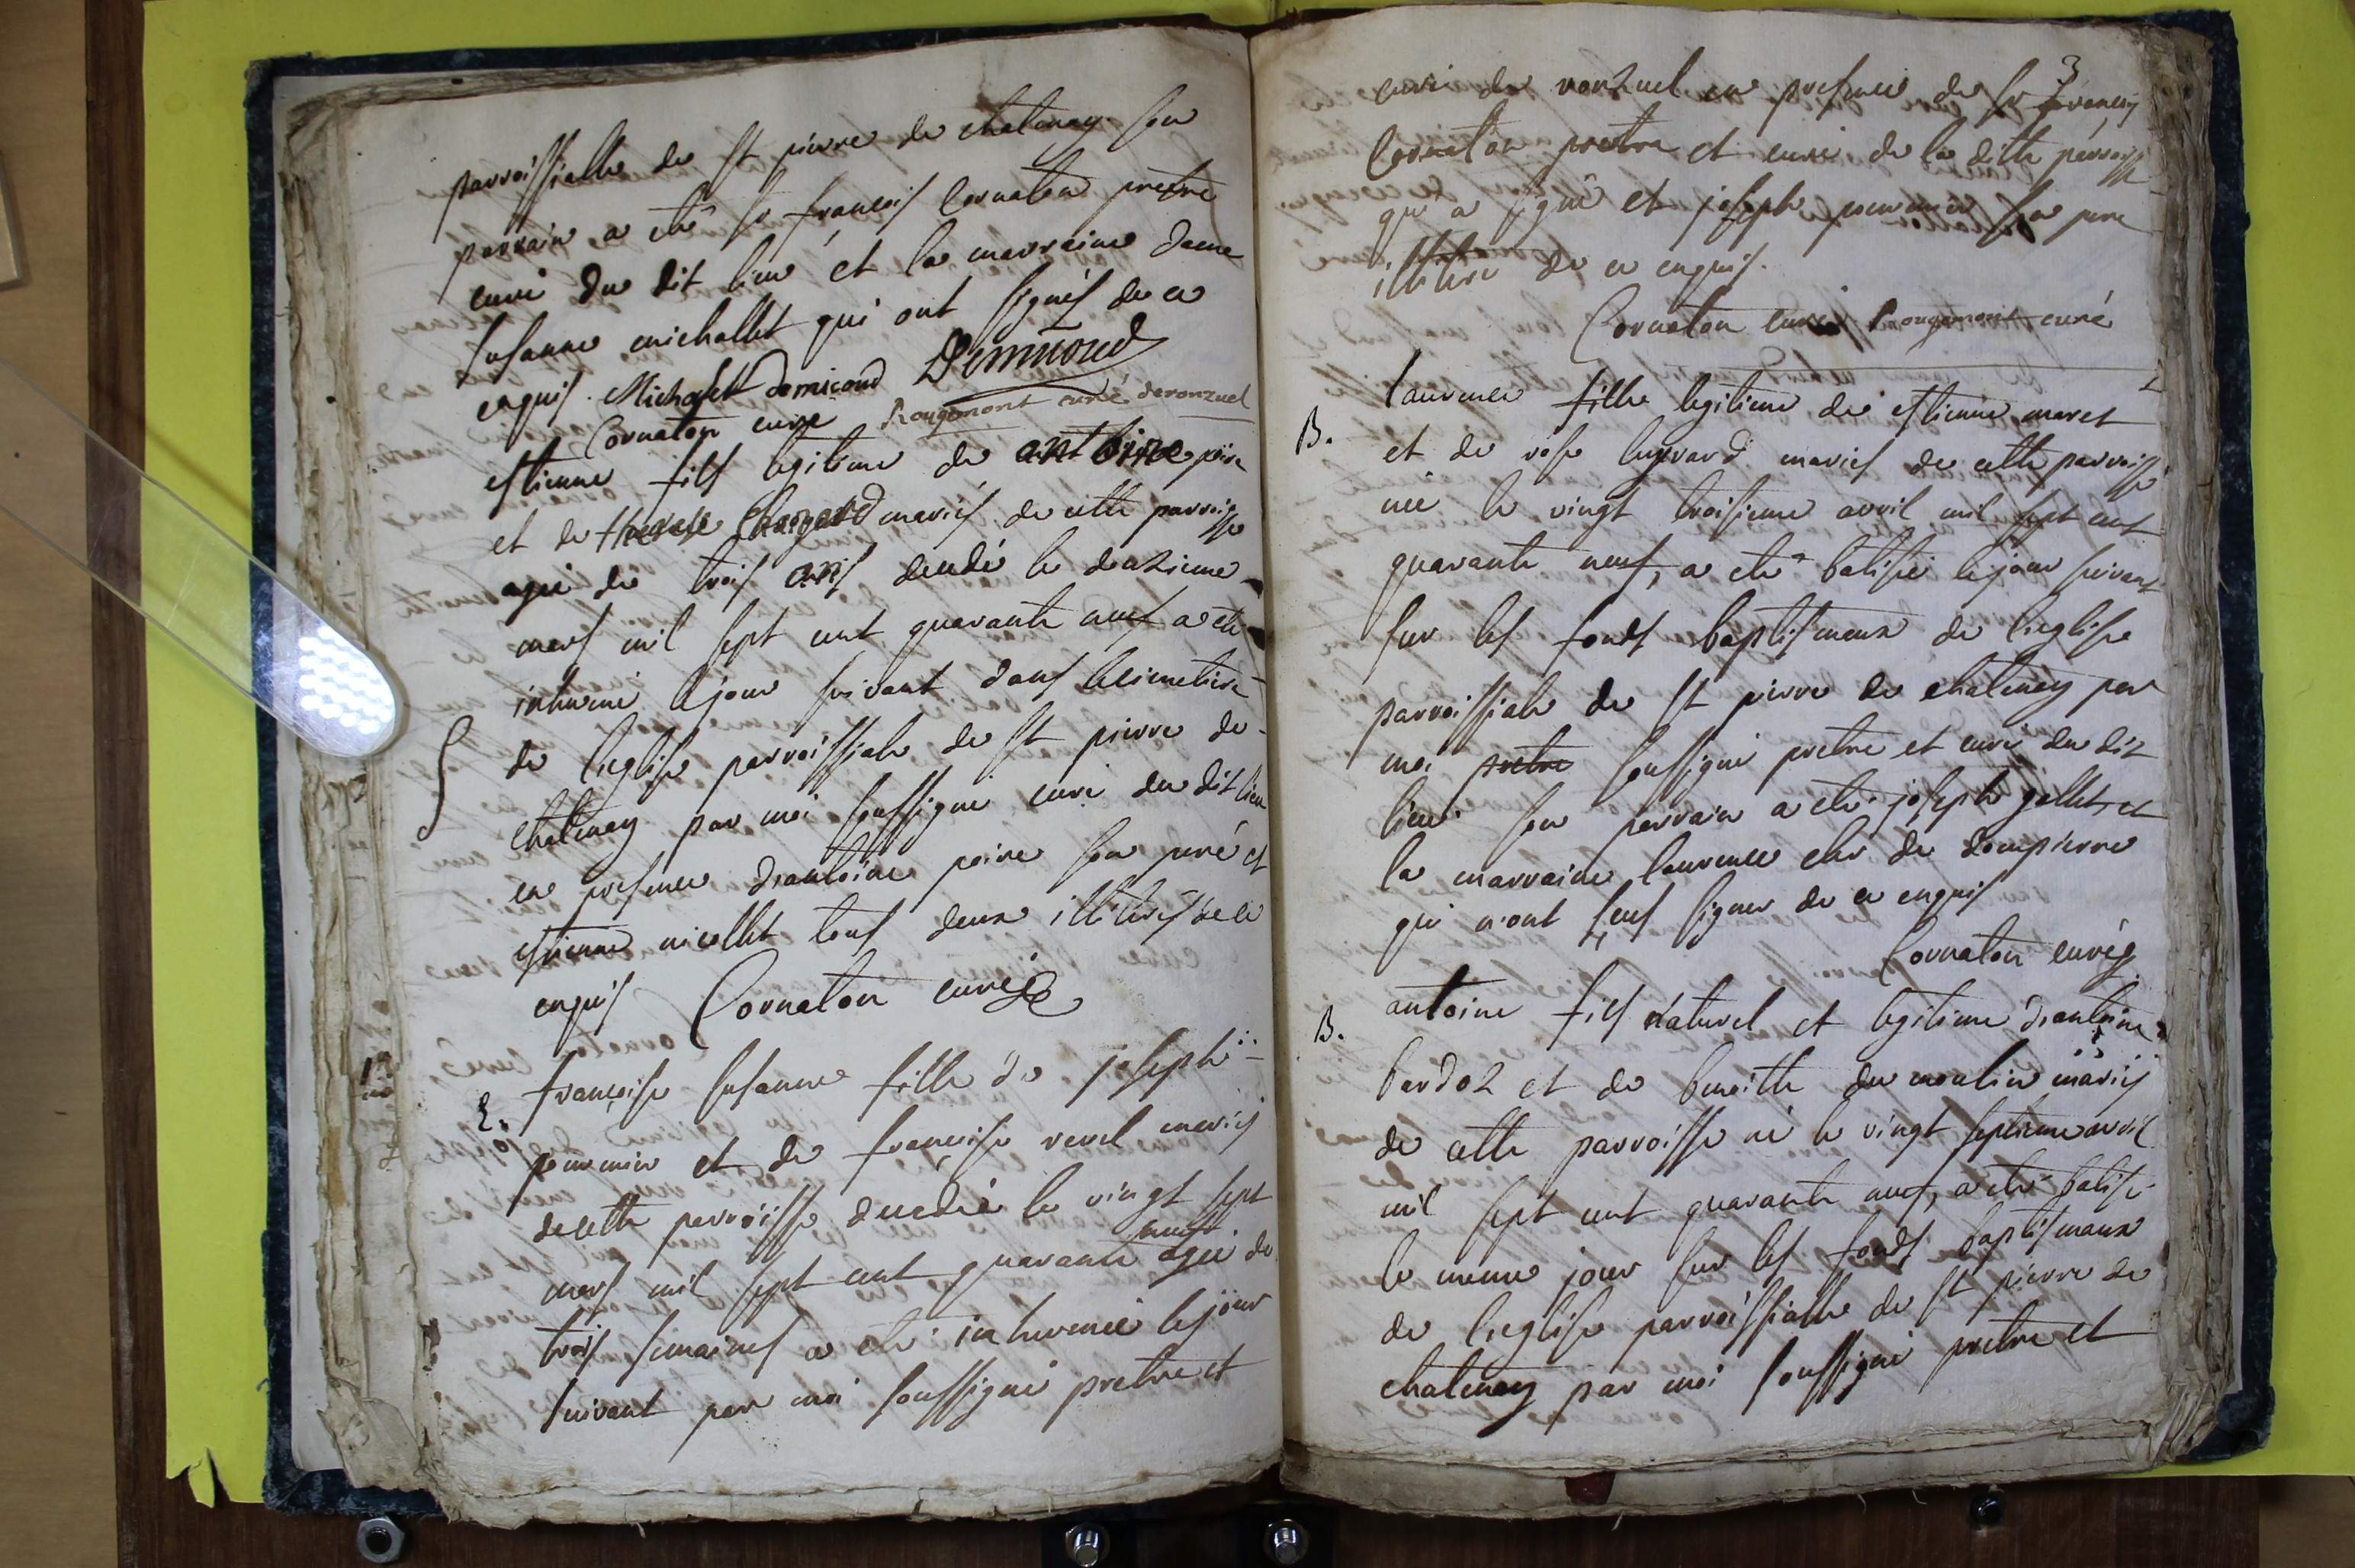 parroissialle de st pierre de chatenay son
parrain a eté sr françois Cornaton pretre
curé du dit lieu et la marraine dame
susanne michallet qui ont signés de ce
enquis. Michalet demicoud Demicoud
Cornaton curé Rougemont curé deronzuel
estienne fils legitime de antoine poire
et de therese mariés de cette parroisse
agé de trois ans decedé le deuzieme
mars mil sept cent quarante neuf a eté
inhumé le jour suivant dans le cimetiere
S de l'eglise parroissiale de st pierre de
chatenay par moi soussigné curé du dit lieu
en presence d'antoine poire son peré et
estienne nicollet tous deux illiterés de ce
enquis Cornaton curé
françoise susanne fille de joseph
S. pommier et de françoise revel mariés
de cette parroisse decedeé le vingt sept
neuf
mars mil sept cent quarante ageé de
trois semaines a eté inhumeé le jour
suivant par moi soussigné pretre et
3
curé de ronzuel en presence de sr françois
Cornaton pretre et curé de la ditte parroisse
qu'a signé et joseph pommier son pere
illiteré de ce enquis.
Cornaton curé Rougemont curé
B. Laurence fille legitime de estienne maret
et de rose mariés de cette parroisse
neé le vingt troisieme avril mil sept cent
quarante neuf, a eté batisée le jour suivant
sur les fonds baptismaux de l'eglise
parroissiale de st pierre de chatenay par
moi pretre soussigné pretre et curé du dit
lieu son parrain a eté joseph gallet et
la marraine laurence de dompierre
qui n'ont seus signer de ce enquis
Cornaton curé
B. antoine fils naturel et legitime d'antoine
bardoz et de benoitte du moulin mariés
de cette parroisse né le vingt septieme avril
mil sept cent quarante neuf, a eté batisé
le meme jour sur les fonds baptismaux
de l'eglise parroissialle de st pierre de
chatenay par moi soussigné pretre et